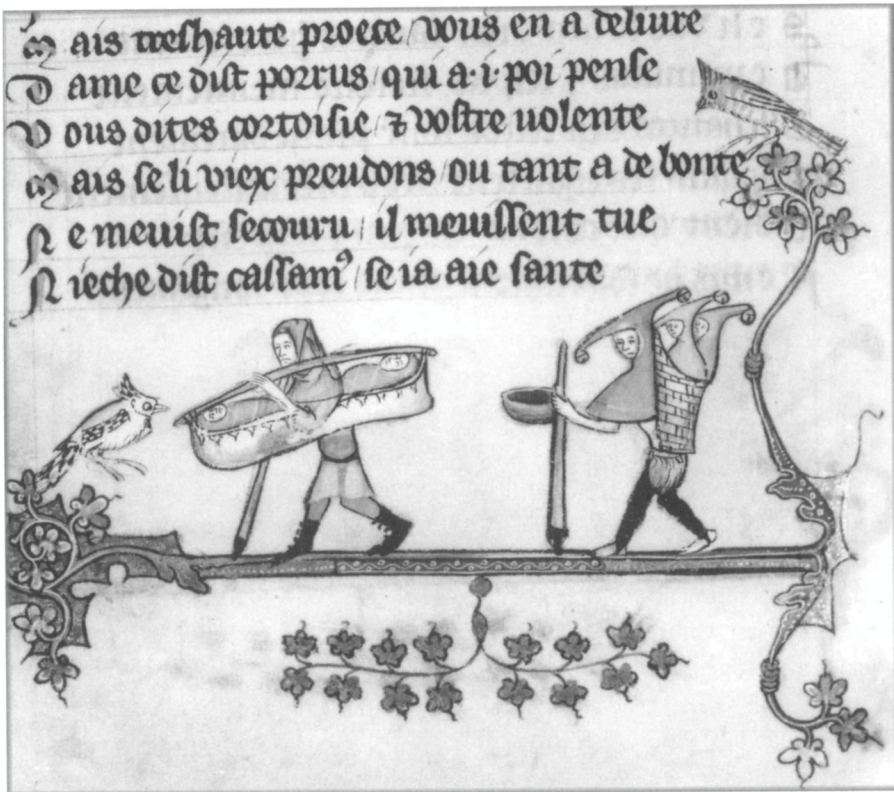 Mais treshaute proece / vous en a deliure
Dame ce dist porrus / qui a ·i· poi pense
Vous dites cortoisie / ⁊ vostre uolente
Mais se li viex preudons / ou tant a de bonte
Ne meuist secouru / il meuissent tue
Nieche dist cassamꝰ / se ia aie sante